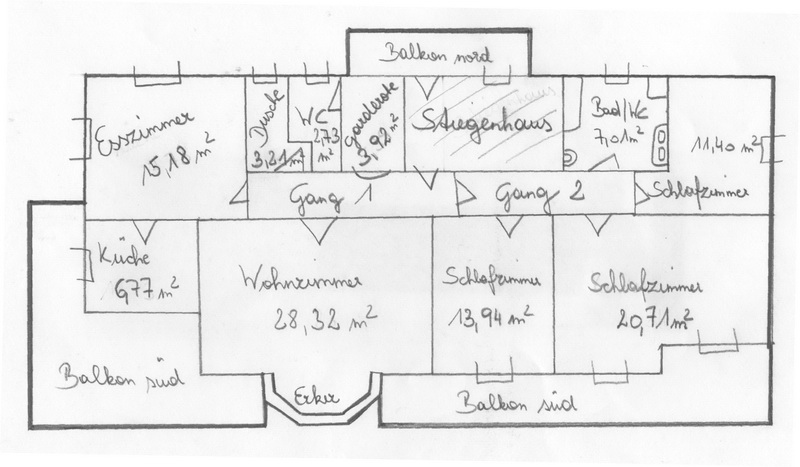 Balkon nord
Esszimmer
15,18 m²
Dusche
3,21 m²
WC
2,73 m²
Garderobe
3,92 m²
Stiegenhaus
Bad/WC
7,01 m²
11,40 m²
Schlafzimmer
Gang 1
Gang 2
Küche
6,77 m²
Wohnzimmer
28,32 m²
Schlafzimmer
13,94 m²
Schlafzimmer
20,71 m²
Balkon süd
Erker
Balkon süd